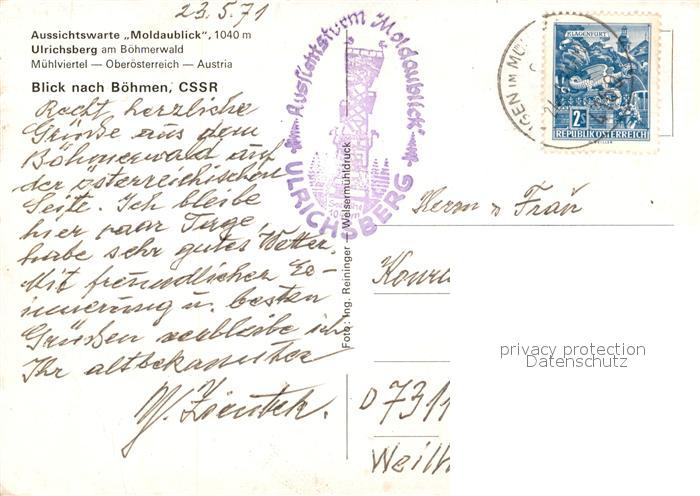 23.5.71
Aussichtswarte „Moldaublick", 1040 m
Ulrichsberg am Böhmerwald
Mühlviertel — Oberösterreich — Austria
Blick nach Böhmen, CSSR
Recht herzliche
Grüße aus dem
Böhmerwald auf
der österreichischen
Seite. Ich bleibe
hier paar Tage,
habe sehr gutes Wetter.
Mit freundlicher Er-
innerung u. besten
Grüßen verbleibe ich
Ihr altbekannter
Foto: Ing. Reininger — Weisermühldruck
Aussichtsturm Moldaublick
ULRICHSBERG
KLAGENFURT
2S
REPUBLIK ÖSTERREICH
GEN IM MÜ
Herrn u Frau
Konra
D 7311
Weilh
privacy protection
Datenschutz